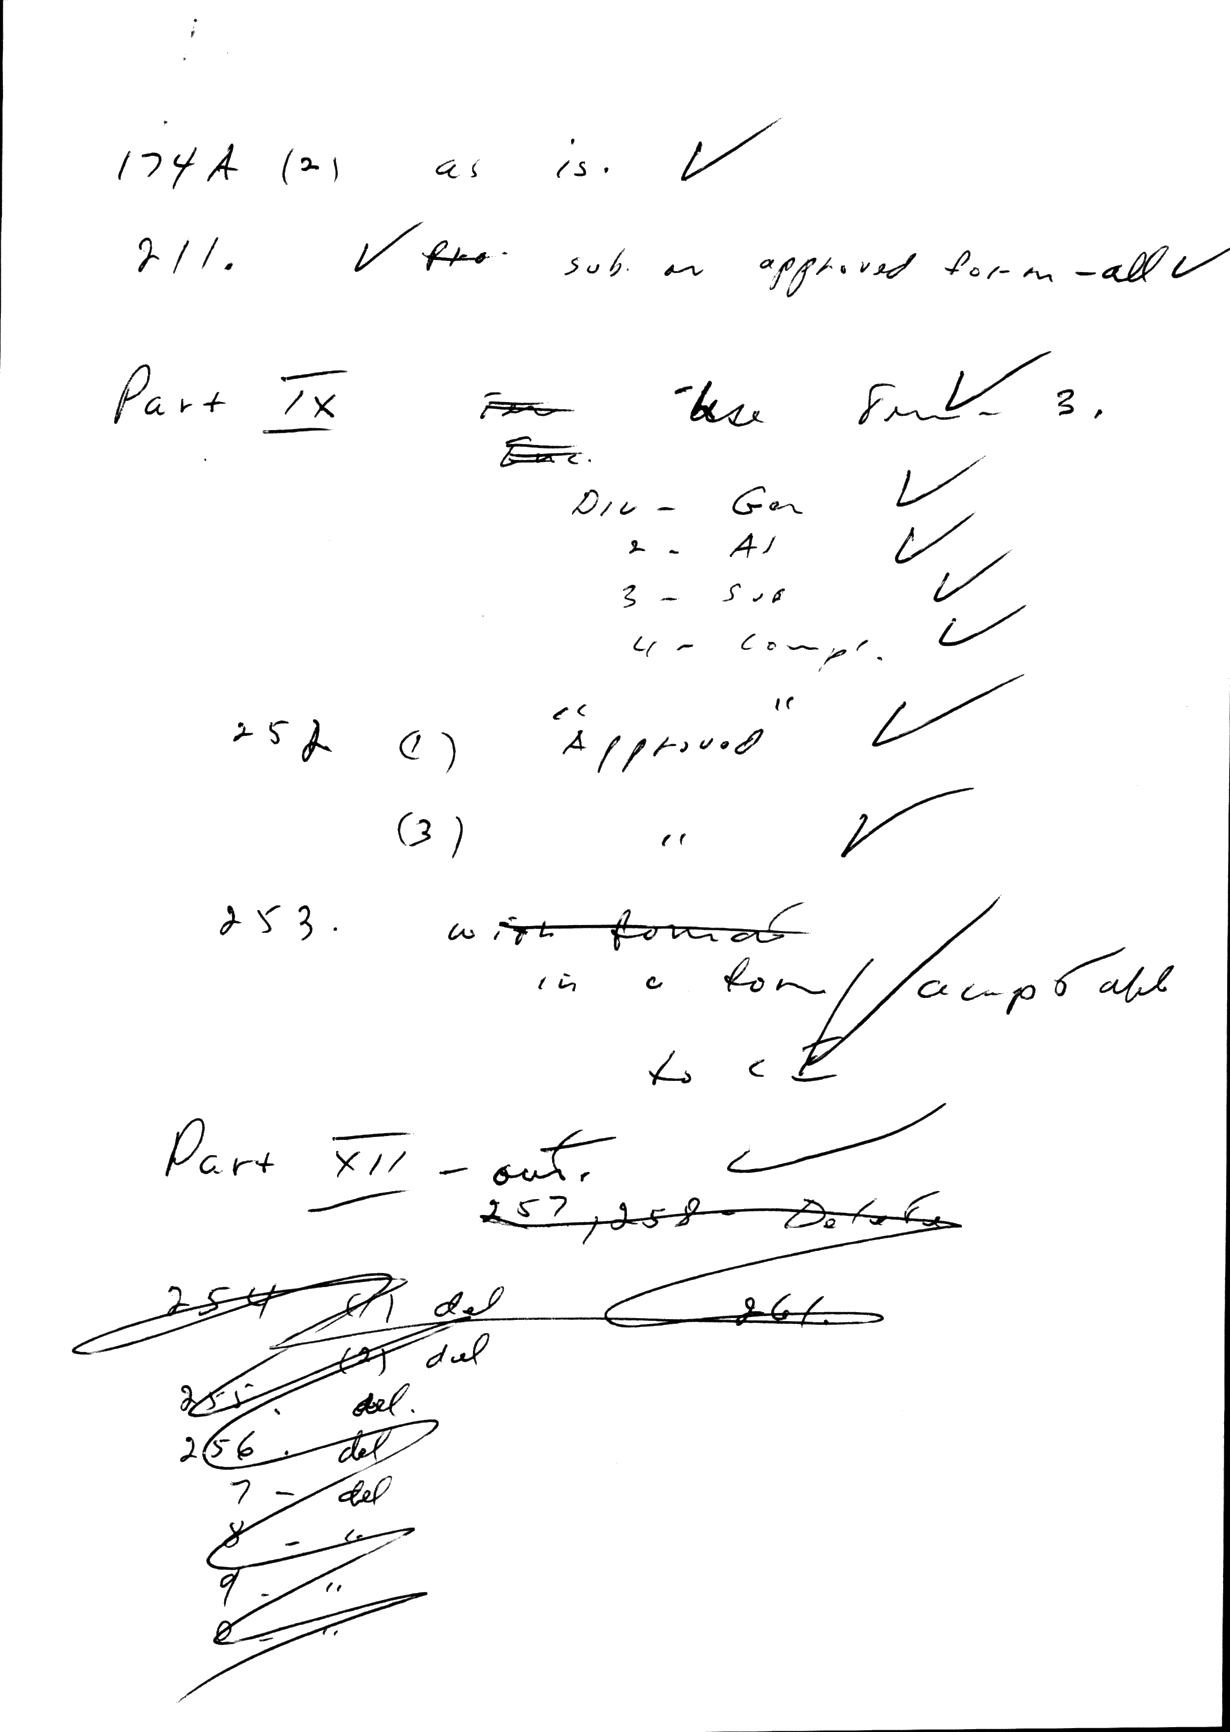 174A (2) as is. ✓
211. ✓ sub. on approved form - all ✓
Part IX Use Form 3. ✓
Div - Gen ✓
2 - As ✓
3 - Sub ✓
4 - Compl. ✓
252 (1) "Approved" ✓
(3) " ✓
253. with format
in a form acceptable ✓
to CI
Part XII - out. ✓
257, 258 - Delete
254 (1) del 261.
(2) del
255. del.
256. del
7 - del
8 - "
9 - "
0 - "